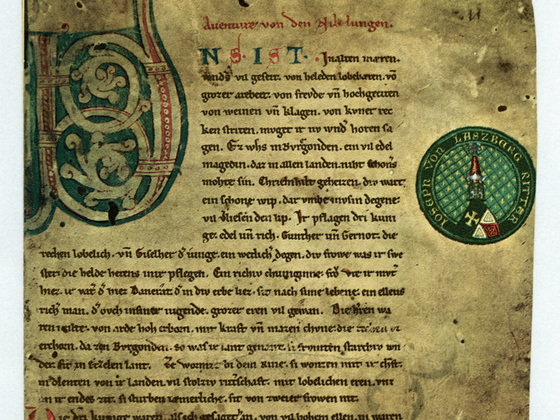 Auenture von den Nibelungen.
VNS. IST. In alten mæren.
wnders vil geseit. von heleden lobebæren. vn̄
grozer arebeit. von frevde vn̄ hochgeciten
von weinen vn̄ klagen. von kvner rec
ken striten. mvget ir nv wnder horen sa
gen. Ez whs in Bvrgonden. ein vil edel
magedin. daz in allen landen. niht schoners
mohte sin. Chriemhilt geheizen. div wart
ein schone wip. dar vmbe mvsin degene
vil vliesen den lip. Ir pflagen dri kuni
ge. edel vn̄ rich. Gunther vn̄ Gernot. die
rechen lobelich. vn̄ Giselher d' iunge. ein wetlich' degen. div frowe was ir swe
ster die helde hetens inir pflegen. Ein richiv chuniginne. frov Vte ir mvt'
hiez. ir vat' d' hiez Dancrat. d' in div erbe liez. sit nach sime lebene. ein ellens
rich' man. d' ovch in siner iugende. grozer eren vil gewan. Die h'ren wa
ren milte. von arde hoh erborn. mit kraft vn̄ mazen chvne. die
erchorn. da zen Bvrgonden. so was ir lant genant. si frvmten starchiv wn
der. sit in Ezelen lant. Ze Wormze bi dem Rine. si wonten mit ir chraft.
in dienten von ir landen. vil stolziv ritt'schaft. mit lobelichen eren. vnz
an ir endes zit. si sturben iæmerliche. sit von zweier frowen nit.
Die dri kunige waren. als ich gesaget han. von vil hohem ellen. in waren
IOSEPH VON LASZBERG RITTER